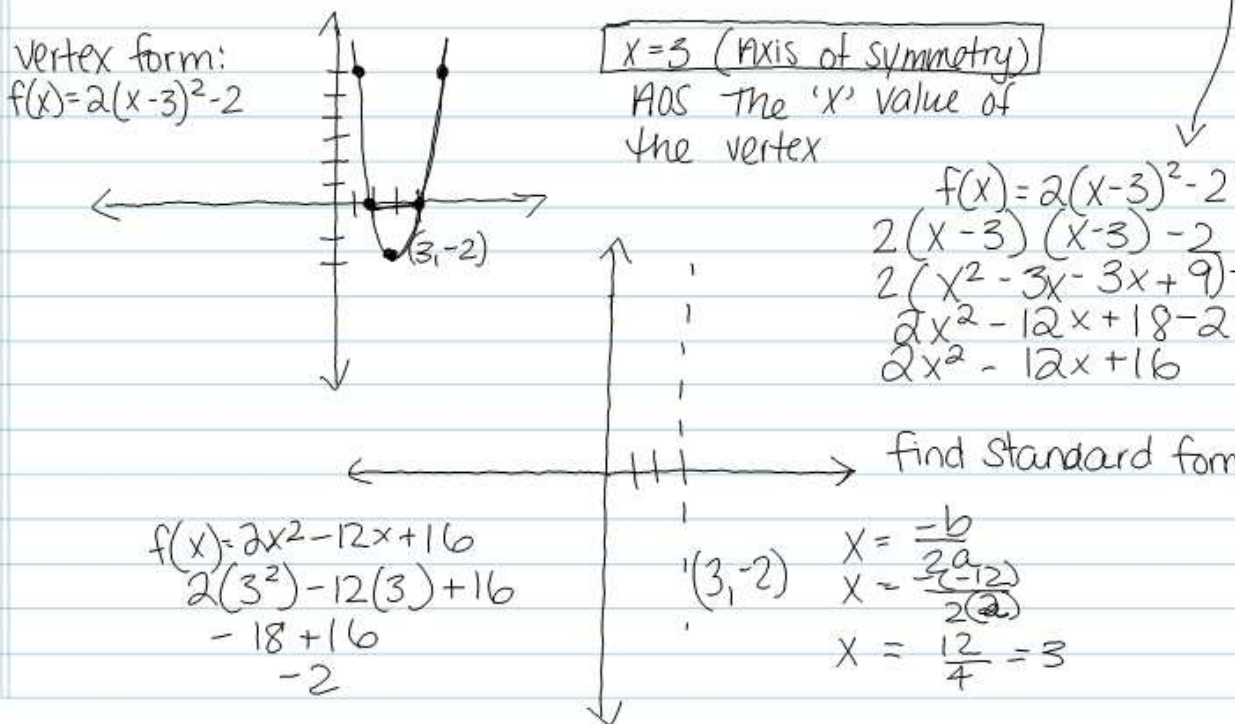 vertex form:
f(x)=2(x-3)²-2
x=3 (Axis of symmetry)
AOS The 'x' value of
the vertex
(3,-2)
f(x)=2(x-3)²-2
2(x-3)(x-3)-2
2(x²-3x-3x+9)-
2x²-12x+18-2
2x²-12x+16
find standard form
f(x)=2x²-12x+16
2(3²)-12(3)+16
-18+16
-2
(3,-2)
x = -b/2a
x = -(-12)/2(2)
x = 12/4 = 3